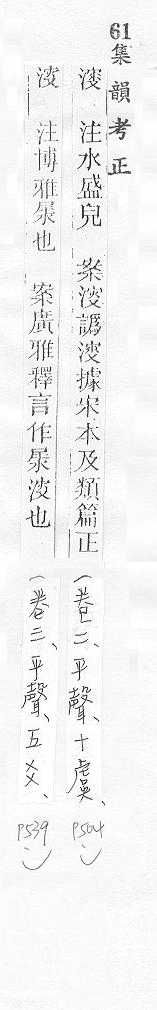 61 集韻考正
溲 注水盛皃 案溲譌溲據宋本及類篇正 (卷二、平聲、十虞、 P504
溲 注博雅㬥也 案廣雅釋言作㬥溲也 (卷三、平聲、五爻、 P539